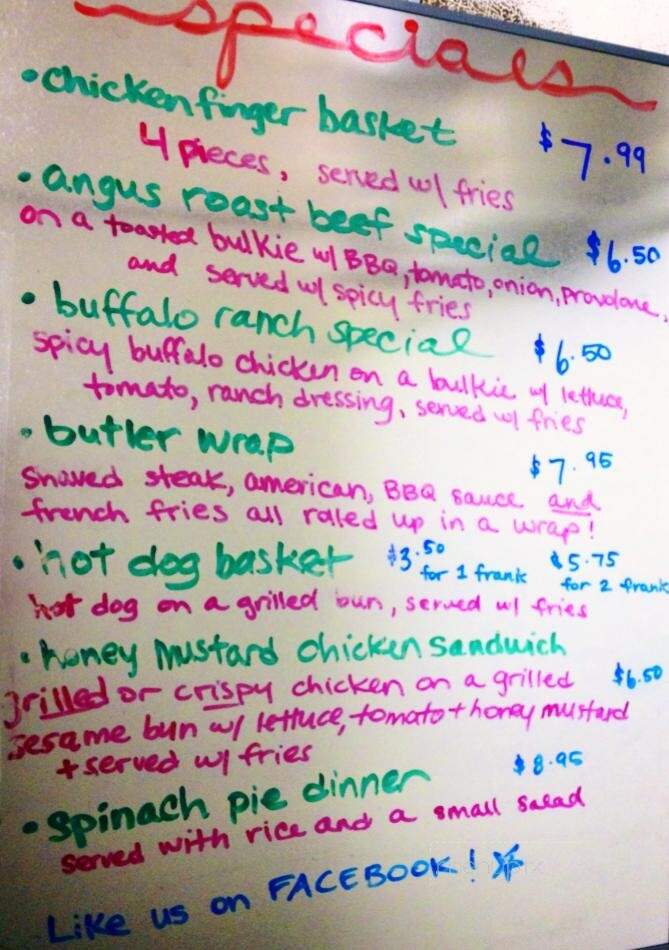 specials
• chicken finger basket $7.99
4 pieces, served w/ fries
• angus roast beef special $6.50
on a toasted bulkie w/ BBQ, tomato, onion, provolone,
and served w/ spicy fries
• buffalo ranch special $6.50
spicy buffalo chicken on a bulkie w/ lettuce,
tomato, ranch dressing, served w/ fries
• butler wrap $7.95
shaved steak, american, BBQ sauce and
french fries all rolled up in a wrap!
• hot dog basket $3.50 for 1 frank $5.75 for 2 frank
hot dog on a grilled bun, served w/ fries
• honey mustard chicken sandwich
grilled or crispy chicken on a grilled $6.50
sesame bun w/ lettuce, tomato + honey mustard
+ served w/ fries
• spinach pie dinner $8.95
served with rice and a small salad
Like us on FACEBOOK!